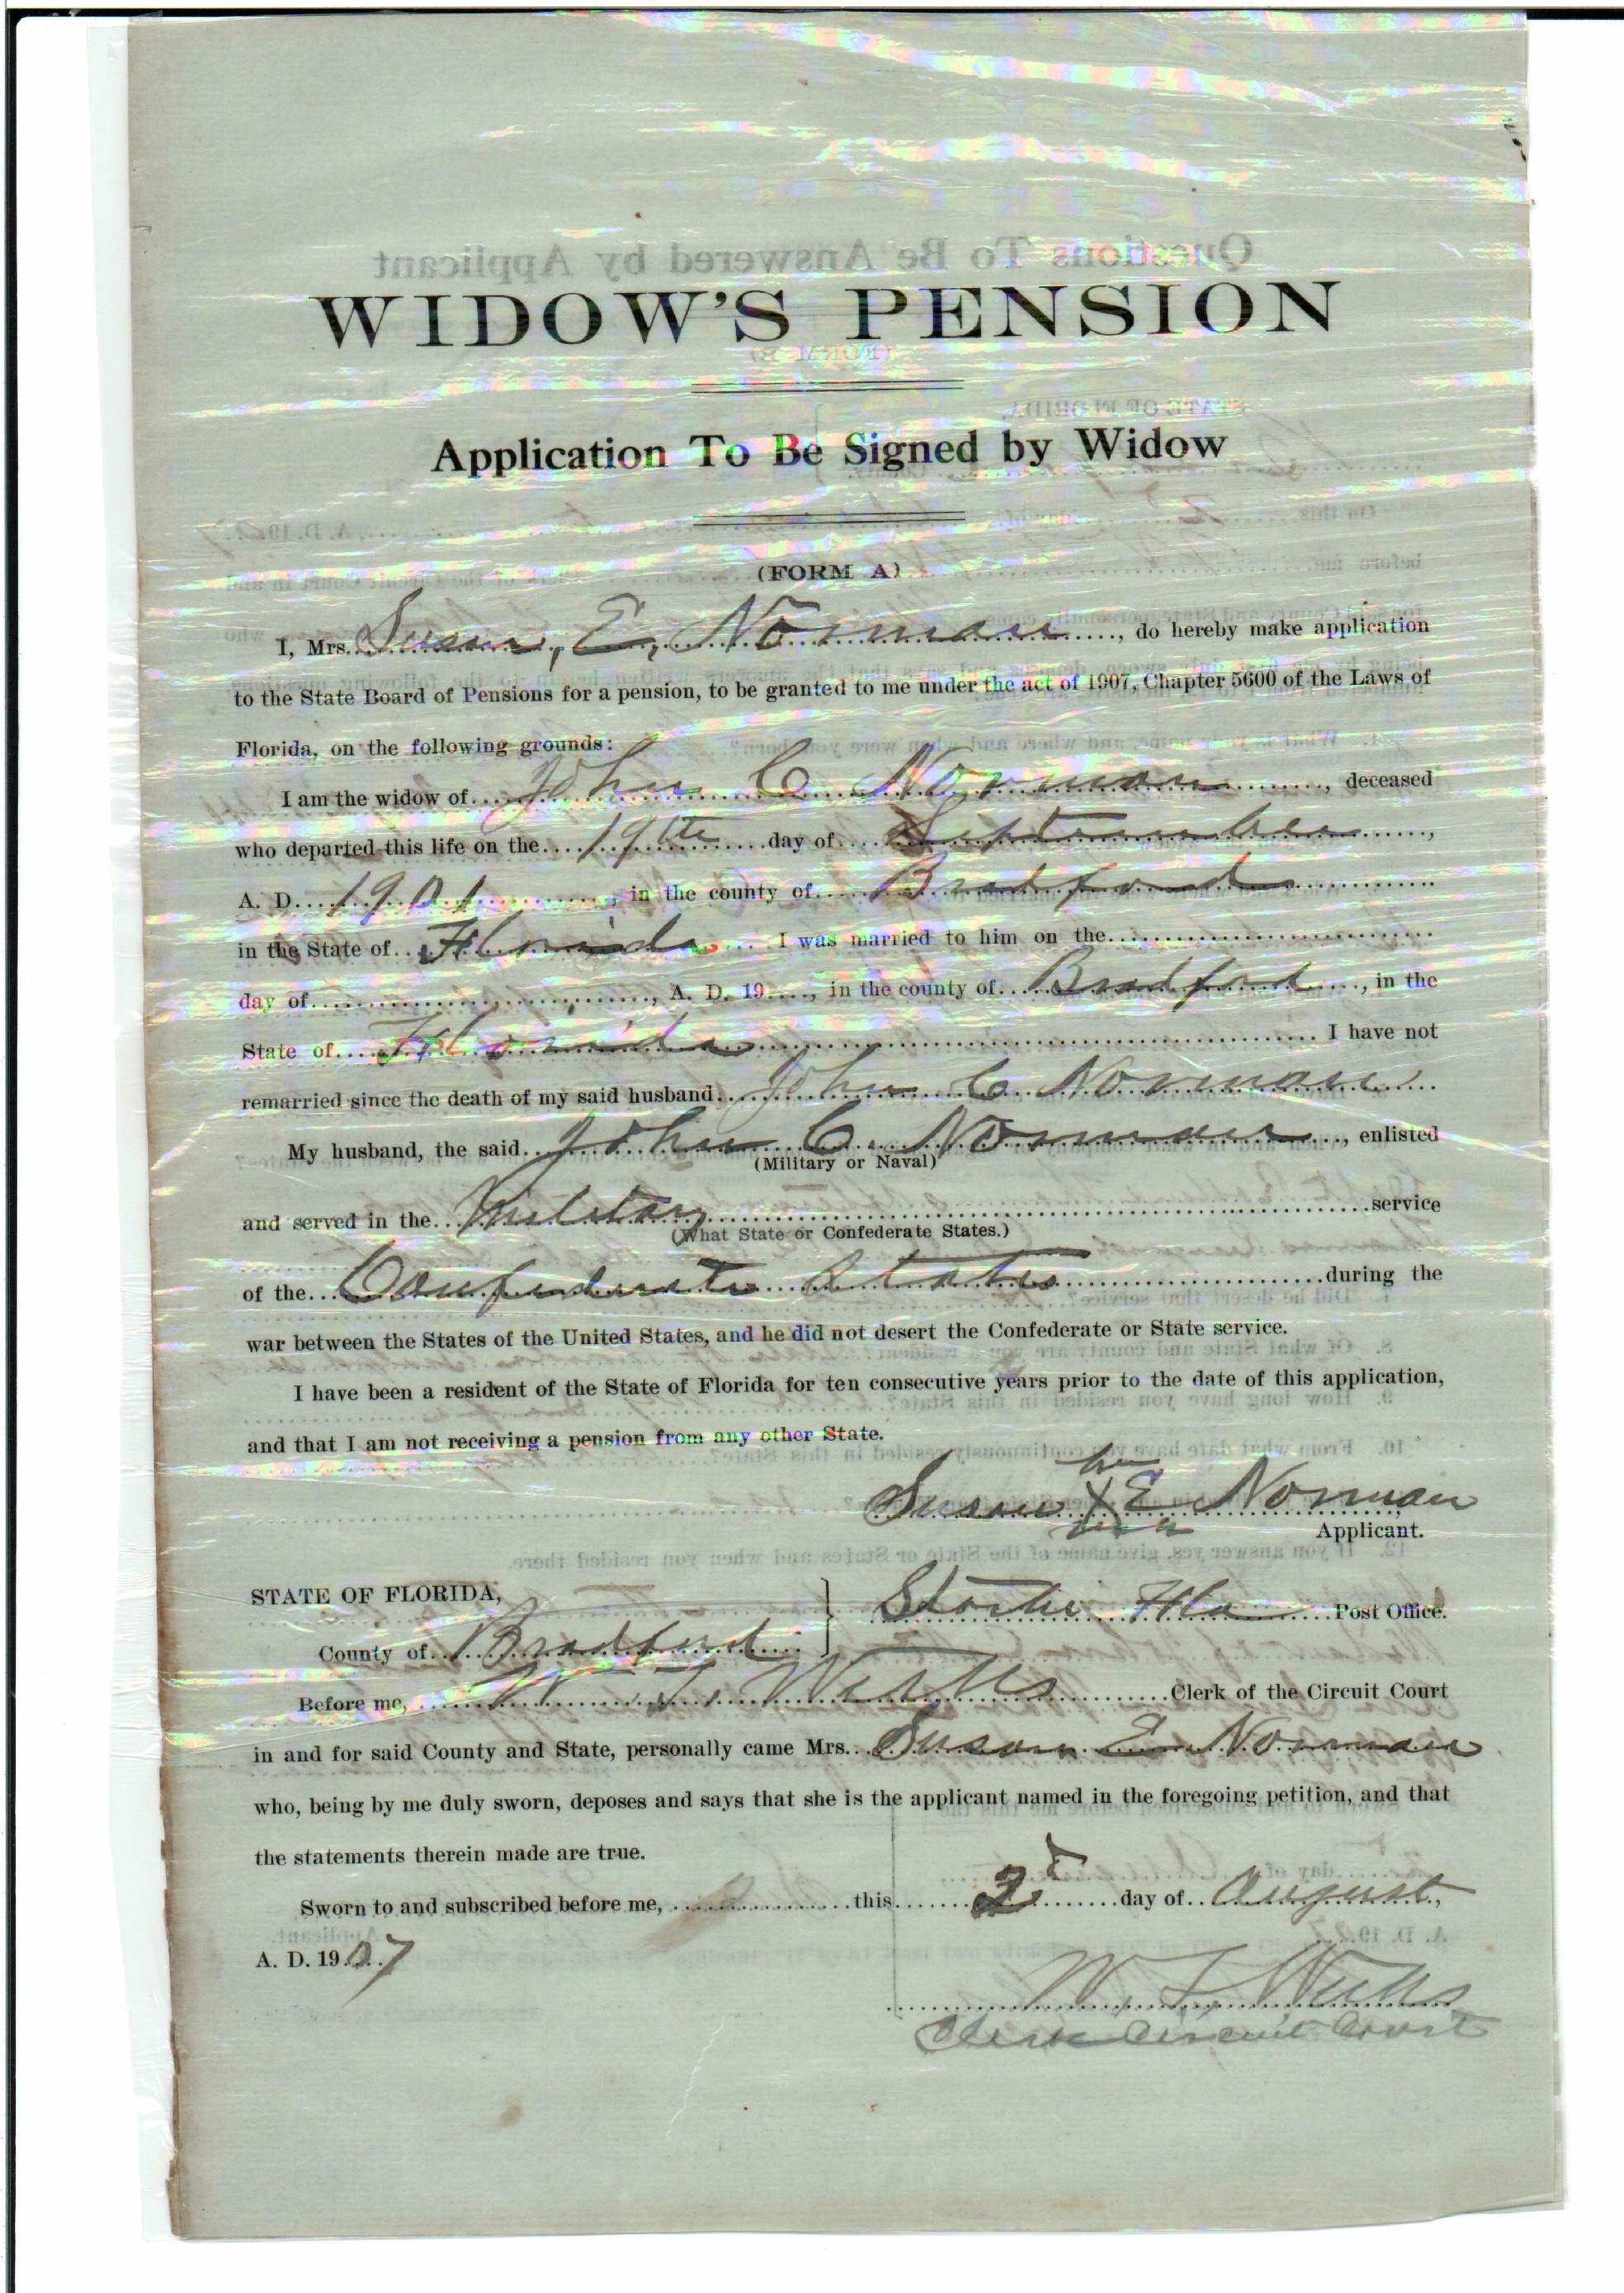 WIDOW'S PENSION
Application To Be Signed by Widow
(FORM A)
I, Mrs. Susan, E, Norman, do hereby make application
to the State Board of Pensions for a pension, to be granted to me under the act of 1907, Chapter 5600 of the Laws of
Florida, on the following grounds:
I am the widow of John C Norman, deceased
who departed this life on the 19th day of September,
A. D. 1901, in the county of Bradford
in the State of Florida I was married to him on the
day of, A. D. 19, in the county of Bradford, in the
State of Florida I have not
remarried since the death of my said husband John C Norman
My husband, the said John C. Norman, enlisted
(Military or Naval)
and served in the Military service
(What State or Confederate States.)
of the Confederate States during the
war between the States of the United States, and he did not desert the Confederate or State service.
I have been a resident of the State of Florida for ten consecutive years prior to the date of this application,
and that I am not receiving a pension from any other State.
her
Susan X E Norman
mark
Applicant.
STATE OF FLORIDA,
Starke Fla Post Office.
County of Bradford
Before me, Clerk of the Circuit Court
in and for said County and State, personally came Mrs. Susan E Norman
who, being by me duly sworn, deposes and says that she is the applicant named in the foregoing petition, and that
the statements therein made are true.
Sworn to and subscribed before me, this 2d day of August,
A. D. 1907
Clerk Circuit Court